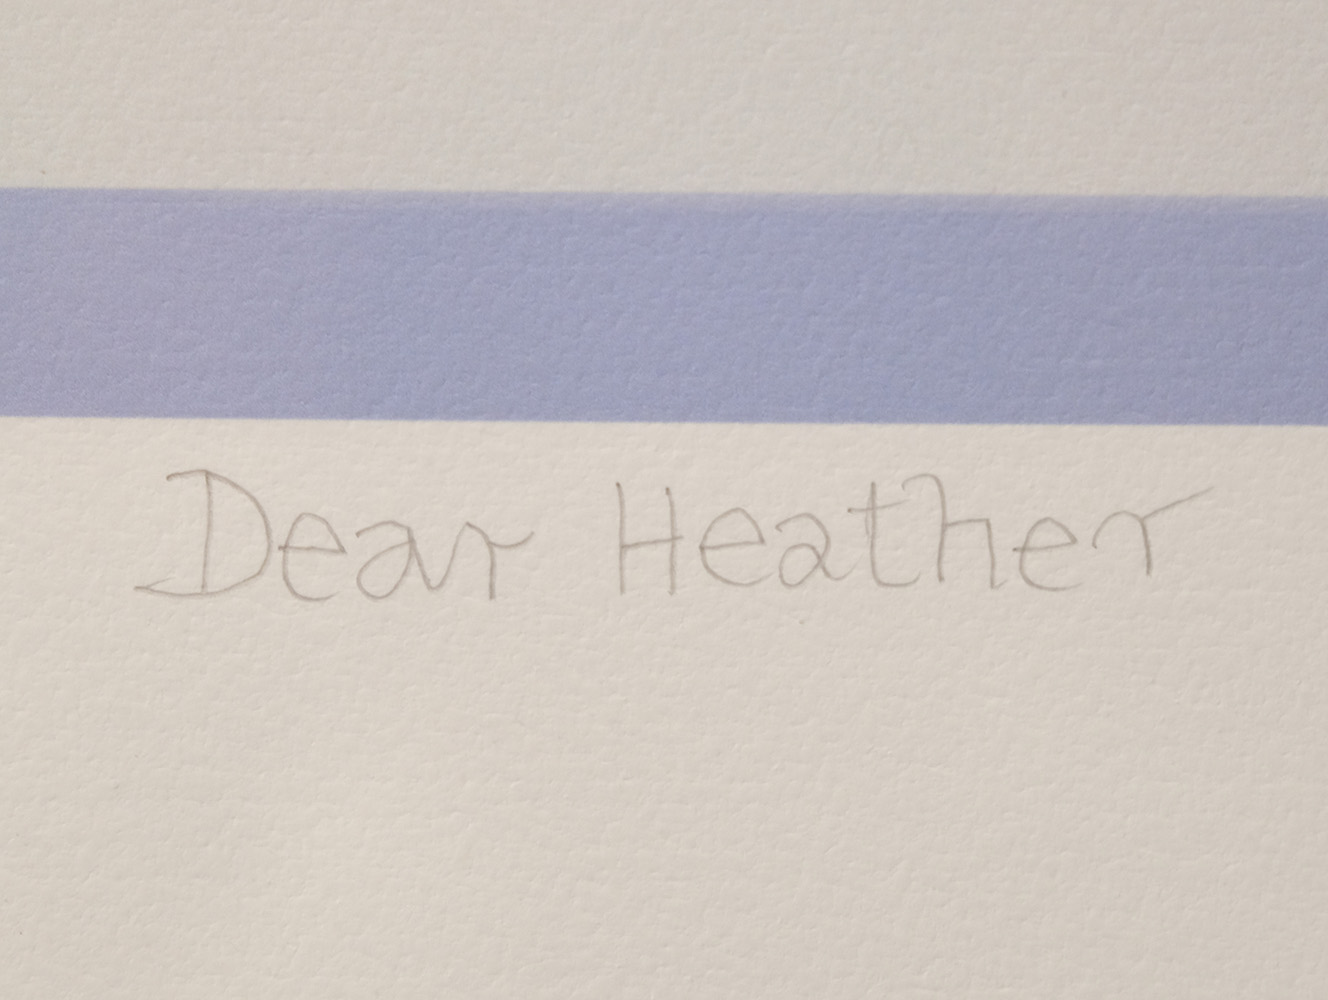 Dear Heather